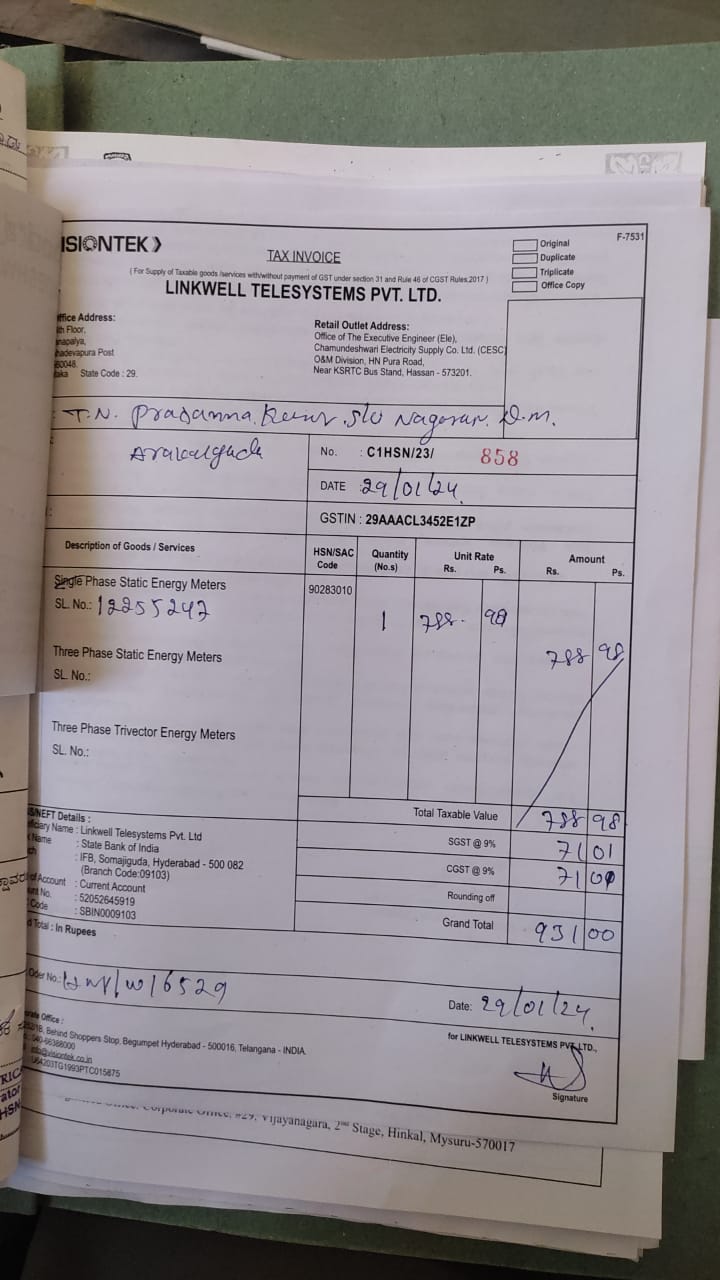 ISIONTEK
TAX INVOICE
( For Supply of Taxable goods /services with/without payment of GST under section 31 and Rule 46 of CGST Rules,2017 )
LINKWELL TELESYSTEMS PVT. LTD.
F-7531
Original
Duplicate
Triplicate
Office Copy
ffice Address:
th Floor,
napalya,
hadevapura Post
60048.
taka State Code : 29.
Retail Outlet Address:
Office of The Executive Engineer (Ele),
Chamundeshwari Electricity Supply Co. Ltd. (CESC)
O&M Division, HN Pura Road,
Near KSRTC Bus Stand, Hassan - 573201.
: T.N. Prasanna Kumar S/o Nagaraj D.M.
Arakalgudu
No. : C1HSN/23/ 858
DATE : 29/01/24
GSTIN : 29AAACL3452E1ZP
Description of Goods / Services HSN/SAC Code Quantity (No.s) Unit Rate Rs. Ps. Amount Rs. Ps.
Single Phase Static Energy Meters 90283010
SL. No.: 12255247 1 788 98 788 98
Three Phase Static Energy Meters
SL. No.:
Three Phase Trivector Energy Meters
SL. No.:
Total Taxable Value 788 98
SGST @ 9% 71 01
CGST @ 9% 71 01
Rounding off
Grand Total 931 00
S/NEFT Details :
ficiary Name : Linkwell Telesystems Pvt. Ltd
Name : State Bank of India
ch : IFB, Somajiguda, Hyderabad - 500 082
(Branch Code:09103)
of Account : Current Account
unt No. : 52052645919
Code : SBIN0009103
d Total : In Rupees
Oder No.: 6529
Date: 29/01/24.
orate Office :
Behind Shoppers Stop, Begumpet Hyderabad - 500016, Telangana - INDIA.
040-66388000
info@visiontek.co.in
U64203TG1993PTC015875
for LINKWELL TELESYSTEMS PVT. LTD.,
Signature
Corporate Office, #29, Vijayanagara, 2nd Stage, Hinkal, Mysuru-570017
RICA
ator
HSN